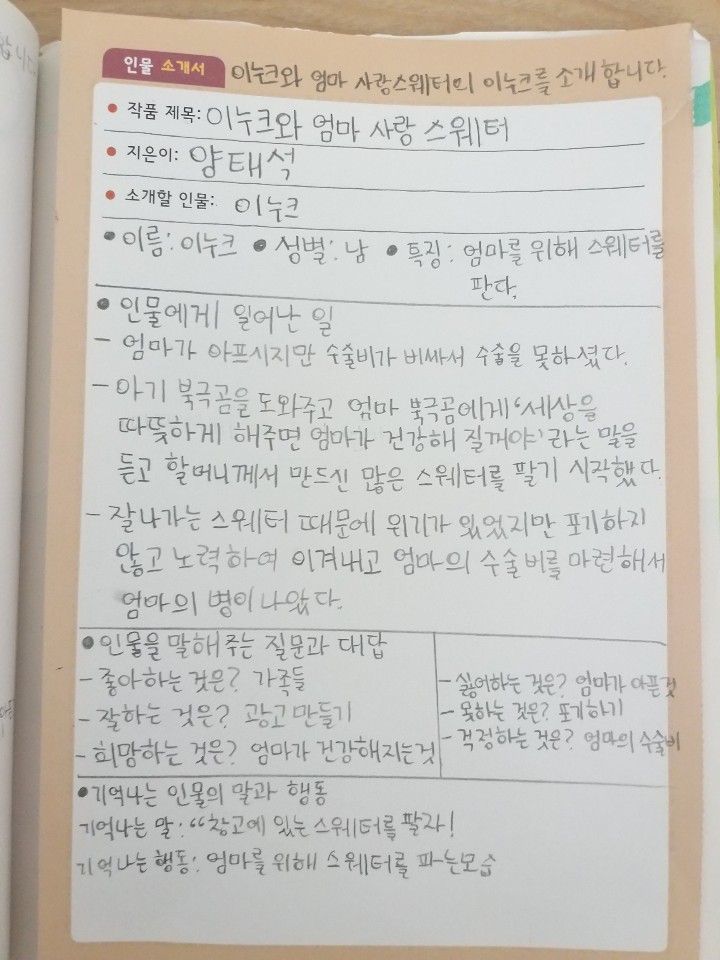 인물 소개서 이누크와 엄마 사랑스웨터의 이누크를 소개 합니다.
• 작품 제목: 이누크와 엄마 사랑 스웨터
• 지은이: 양태석
• 소개할 인물: 이누크
• 이름: 이누크 • 성별: 남 • 특징: 엄마를 위해 스웨터를
판다.
• 인물에게 일어난 일
- 엄마가 아프시지만 수술비가 비싸서 수술을 못하셨다.
- 아기 북극곰을 도와주고 엄마 북극곰에게 '세상을
따뜻하게 해주면 엄마가 건강해 질꺼야' 라는 말을
듣고 할머니께서 만드신 많은 스웨터를 팔기 시작했다.
- 잘나가는 스웨터 때문에 위기가 있었지만 포기하지
않고 노력하여 이겨내고 엄마의 수술비를 마련해서
엄마의 병이 나았다.
• 인물을 말해 주는 질문과 대답
- 좋아하는 것은? 가족들
- 잘하는 것은? 광고 만들기
- 희망하는 것은? 엄마가 건강해지는 것
- 싫어하는 것은? 엄마가 아픈것
- 못하는 것은? 포기하기
- 걱정하는 것은? 엄마의 수술비
• 기억나는 인물의 말과 행동
기억나는 말: "창고에 있는 스웨터를 팔자!
기억나는 행동: 엄마를 위해 스웨터를 파는모습